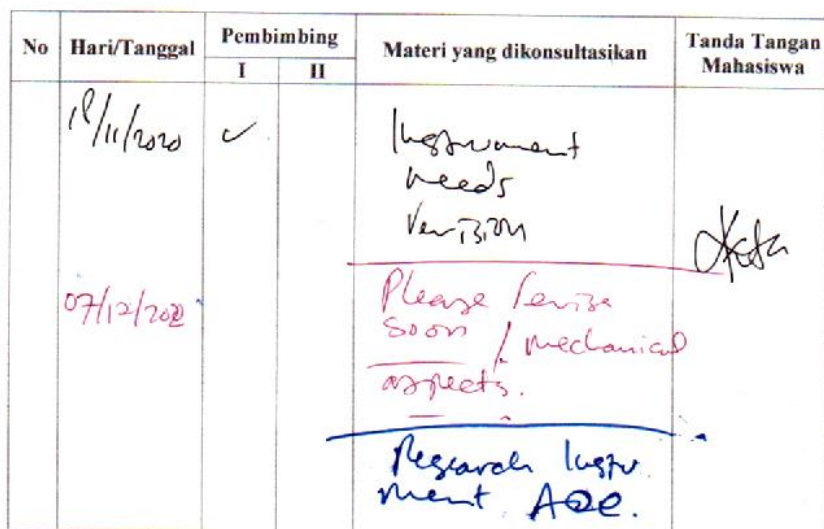 No Hari/Tanggal Pembimbing Materi yang dikonsultasikan Tanda Tangan Mahasiswa
I II
18/11/2020 ✓ Instrument
needs
revision
07/12/202 Please revise
soon / mechanical
aspects.
Research Instru
ment